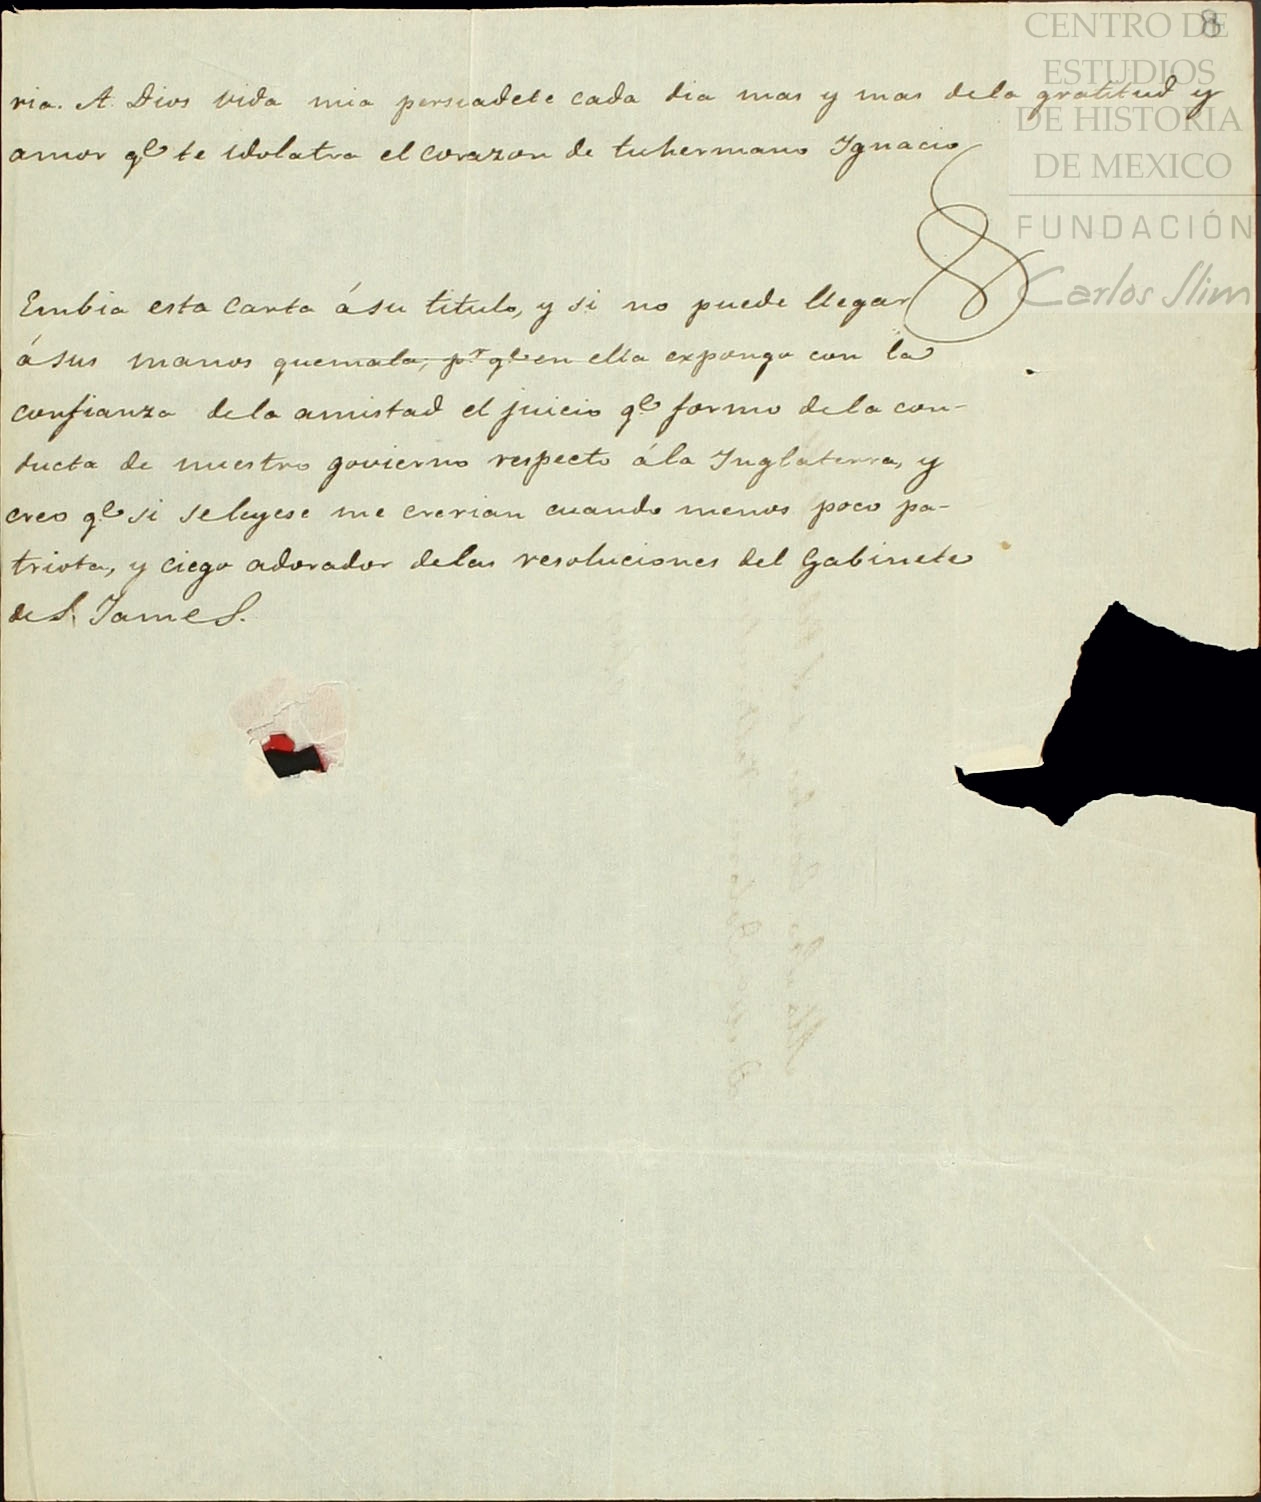 8
CENTRO DE
ESTUDIOS
DE HISTORIA
DE MEXICO
FUNDACIÓN
Carlos Slim
ria. A Dios vida mia persuadete cada dia mas y mas dela gratitud y
amor qe te idolatra el corazon de tuhermano Ignacio
Embia esta carta ásu titulo, y si no puede llegar
ásus manos quemala, pr qe en ella expongo con la
confianza dela amistad el juicio qe formo dela con-
ducta de nuestro govierno respecto ála Inglaterra, y
creo qe si seleyese me crerian cuando menos poco pa-
triota, y ciego adorador delas resoluciones del Gabinete
de S. JameS.